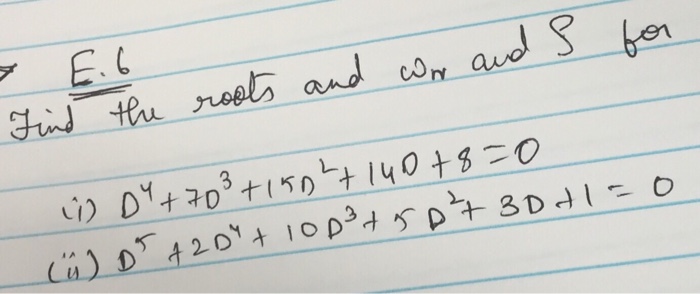 E.6
Find the roots and ωn and ζ for
(i) D⁴+7D³+15D²+14D+8=0
(ii) D⁵+2D⁴+10D³+5D²+3D+1=0